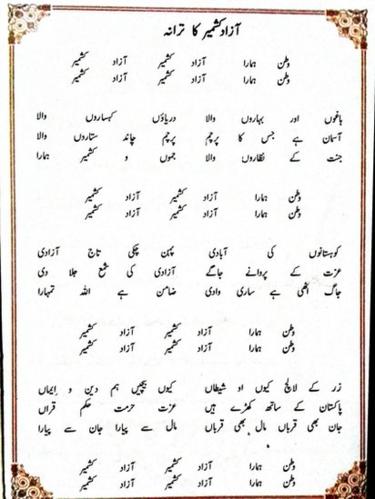 آزاد کشمیر کا ترانہ
وطن ہمارا آزاد کشمیر آزاد کشمیر
وطن ہمارا آزاد کشمیر آزاد کشمیر
باغوں اور بہاروں والا دریاؤں کہساروں والا
آسماں ہے جس کا پرچم پرچم چاند ستاروں والا
جنت کے نظاروں والا جموں و کشمیر ہمارا
وطن ہمارا آزاد کشمیر آزاد کشمیر
وطن ہمارا آزاد کشمیر آزاد کشمیر
کوہستانوں کی آبادی پہن چکی تاج آزادی
عزت کے پروانے جاگے آزادی کی شمع جلا دی
جاگ اٹھی ہے ساری وادی ضامن ہے اللہ تمہارا
وطن ہمارا آزاد کشمیر آزاد کشمیر
وطن ہمارا آزاد کشمیر آزاد کشمیر
زر کے لالچ کیوں او شیطاں کیوں بیچیں ہم دین و ایماں
پاکستان کے ساتھ کھڑے ہیں عزت حرمت حکم قرآں
جان بھی قرباں مال بھی قرباں مال سے پیارا جان سے پیارا
وطن ہمارا آزاد کشمیر آزاد کشمیر
وطن ہمارا آزاد کشمیر آزاد کشمیر